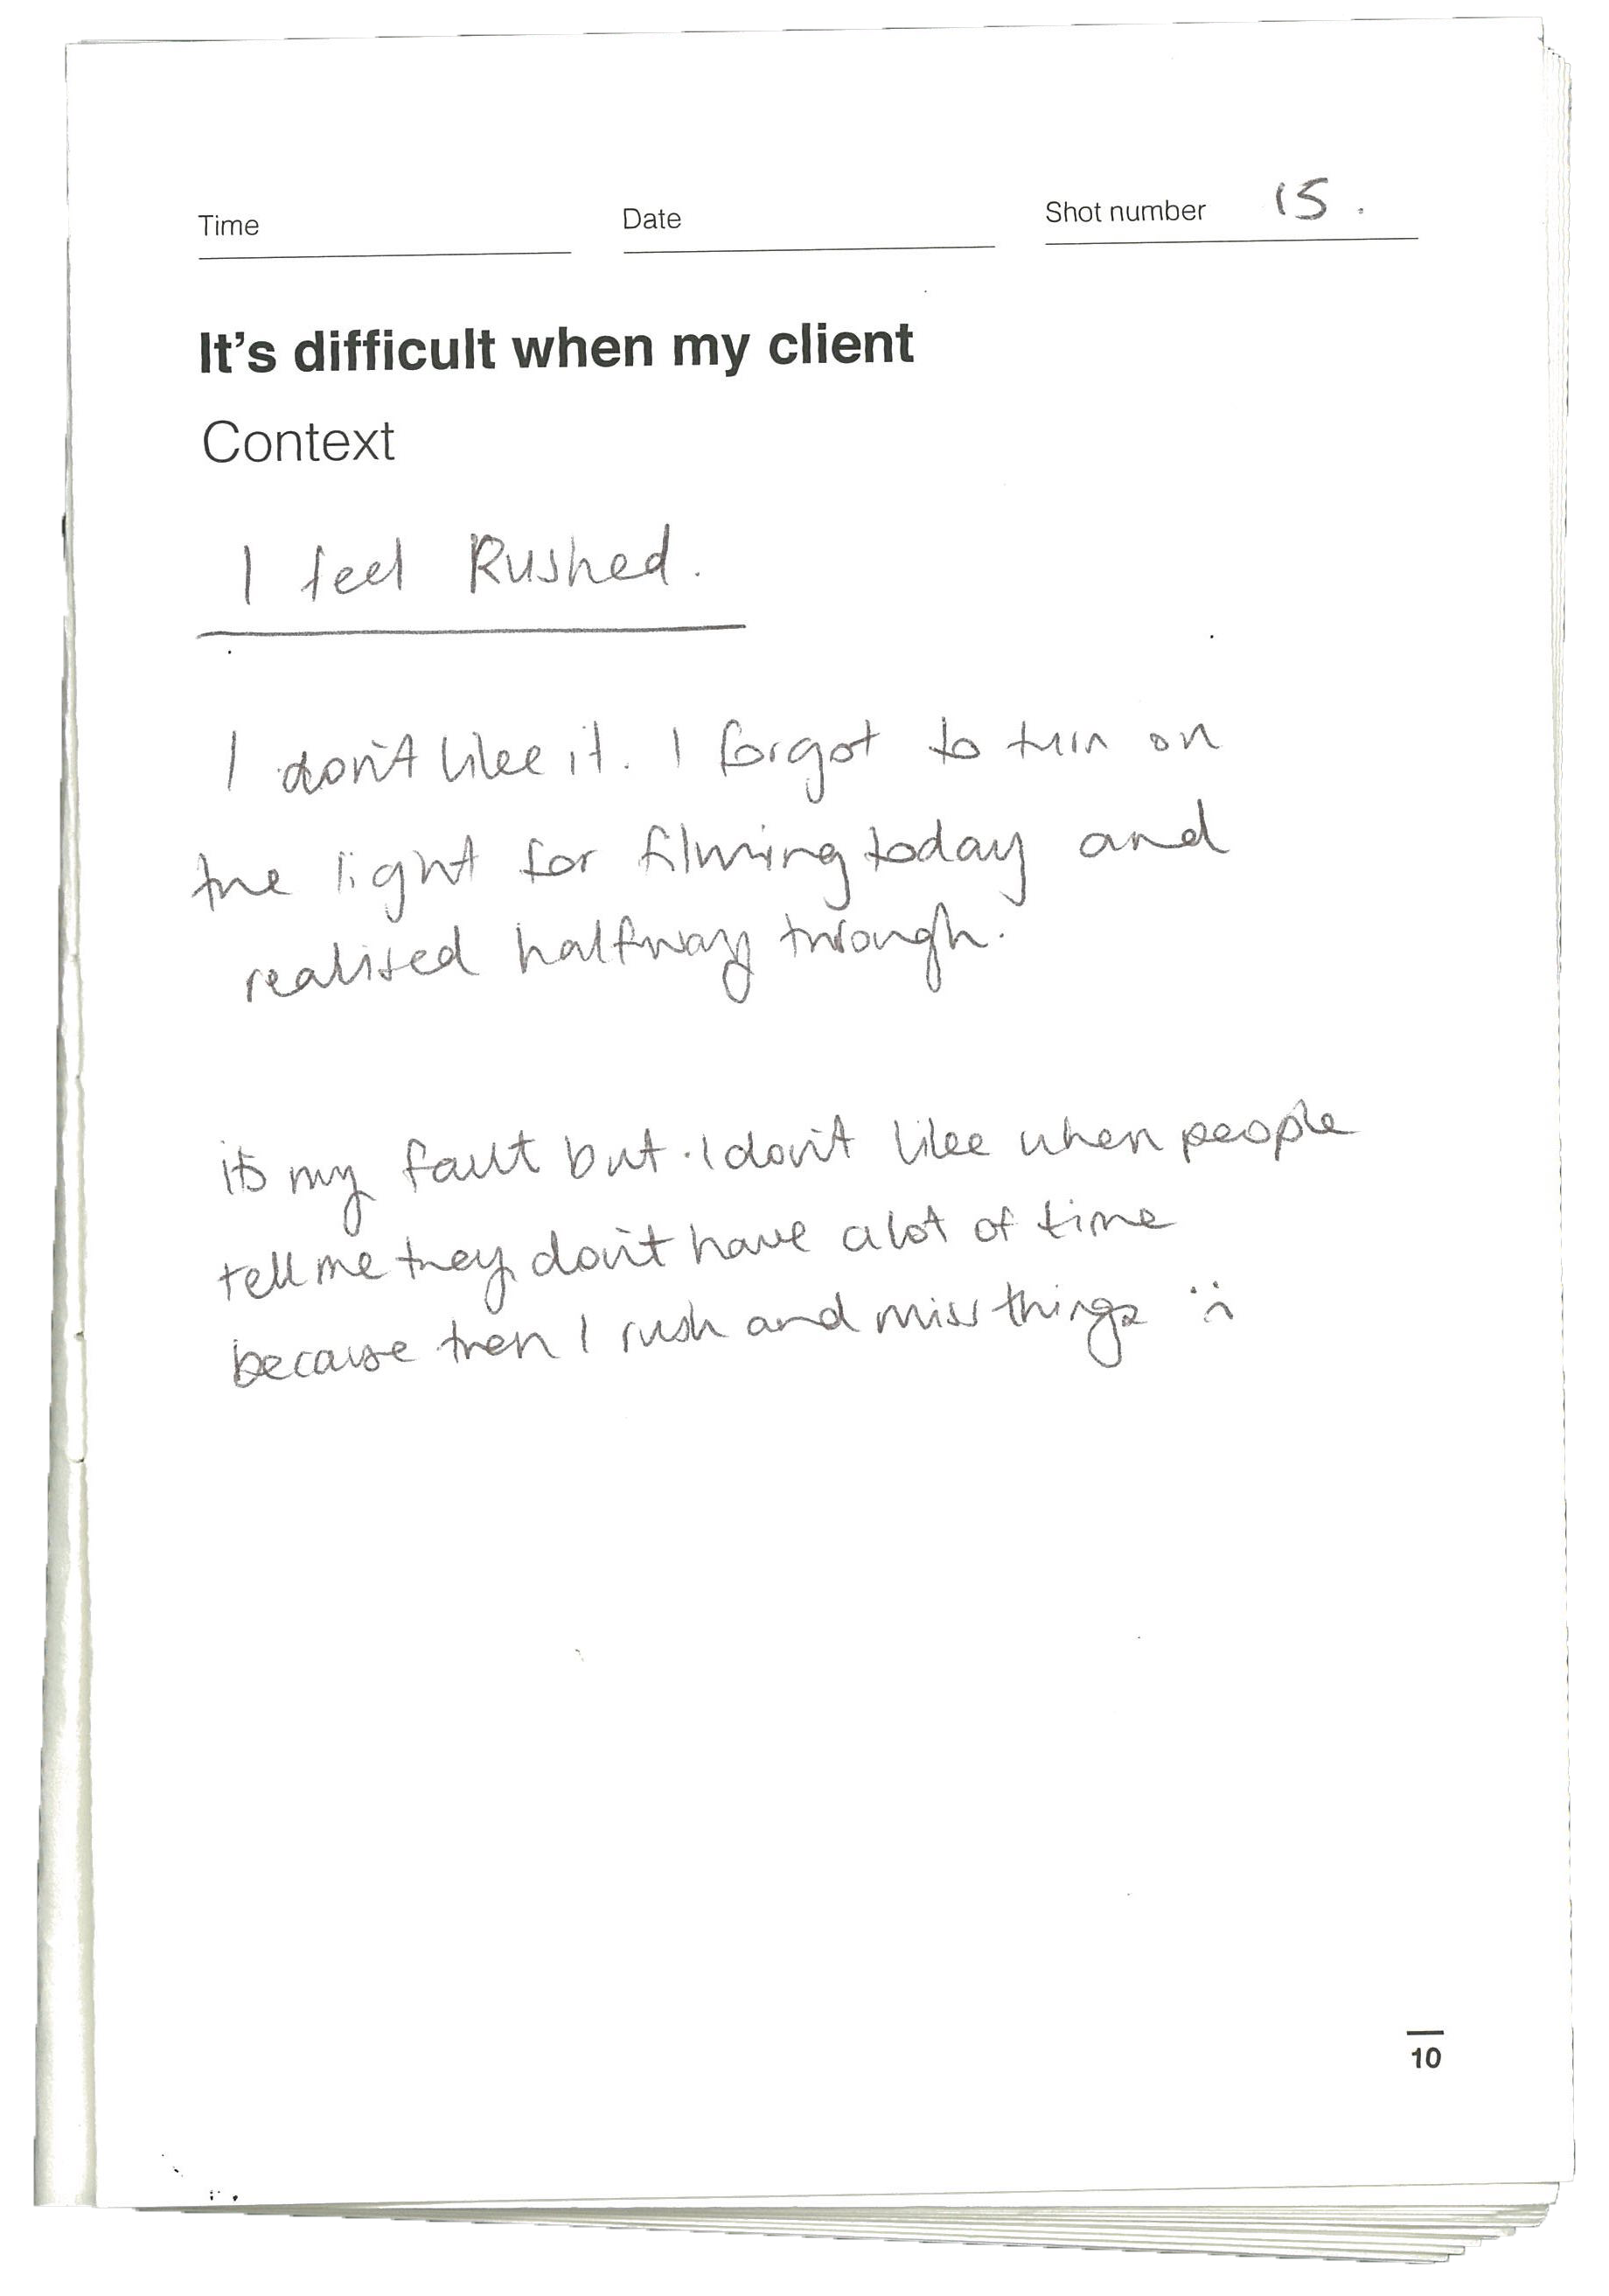 Time Date Shot number 15.
It's difficult when my client
Context
I feel Rushed.
I don't like it. I forgot to turn on
the light for filming today and
realised halfway through.
it's my fault but I don't like when people
tell me they don't have a lot of time
because then I rush and miss things :(
10